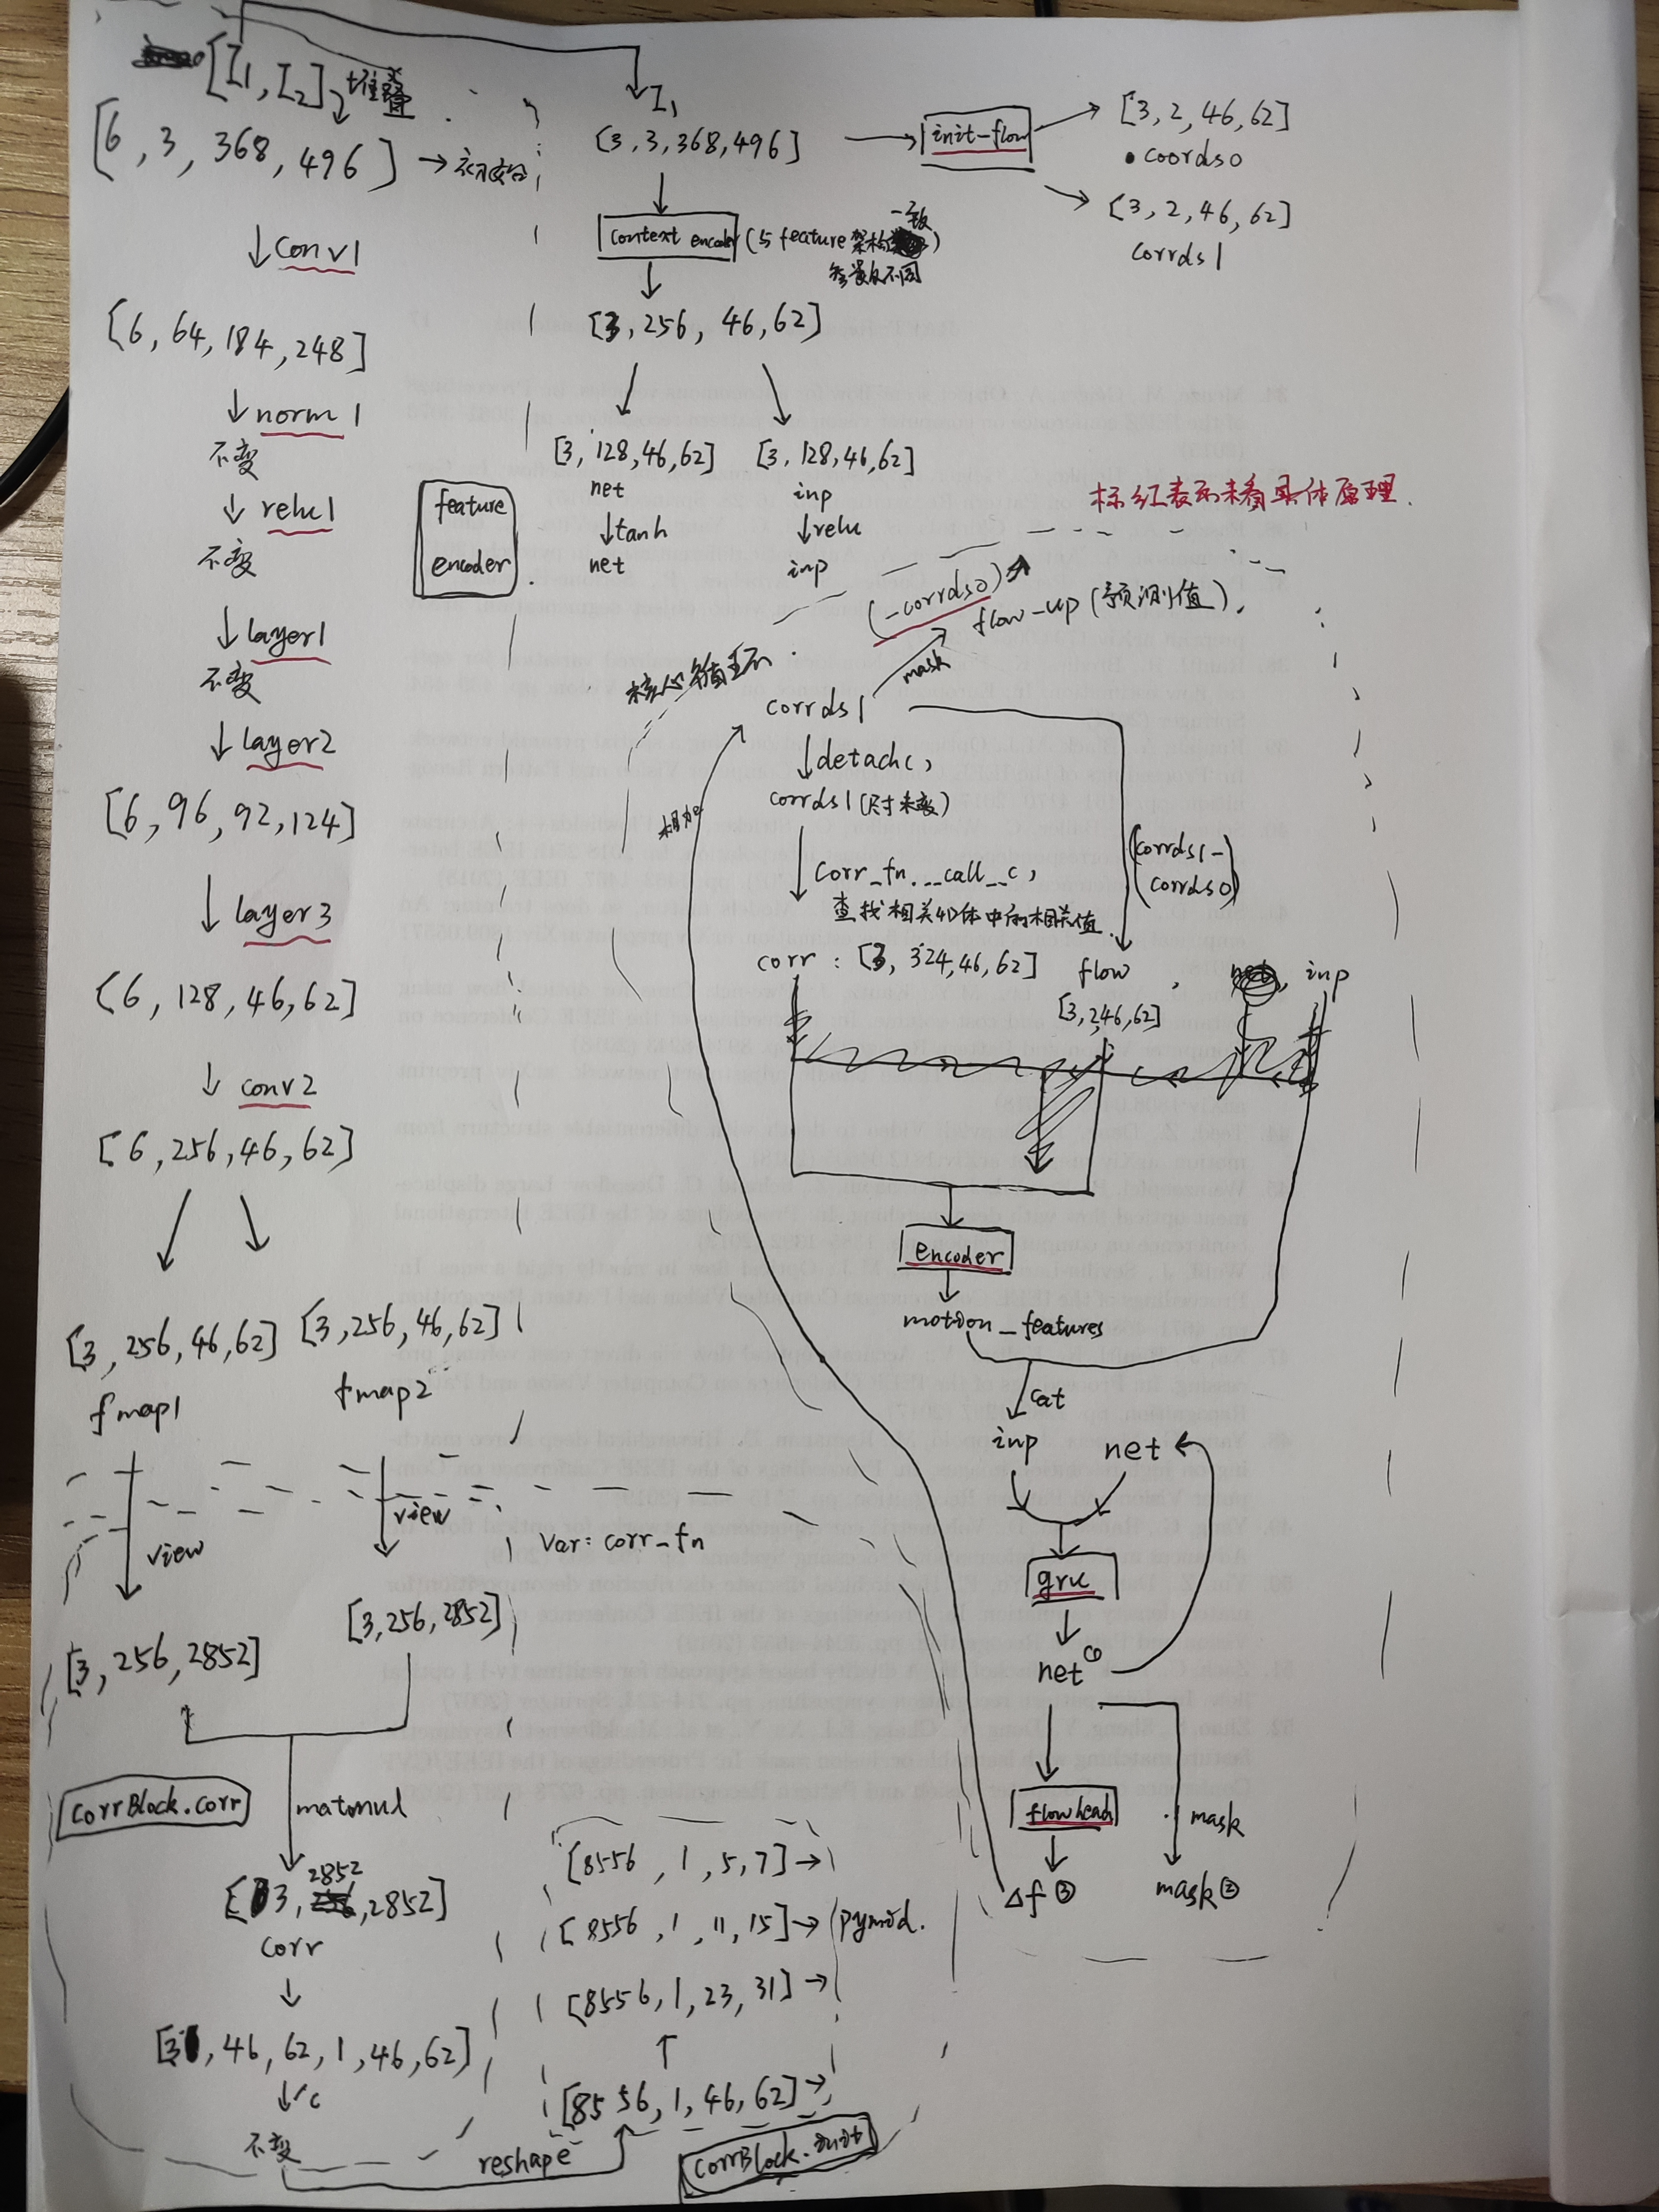 [I1, I2] 堆叠
[6, 3, 368, 496] →
↓conv1
[6, 64, 184, 248]
↓norm1
不变
↓relu1
不变
↓layer1
不变
↓layer2
[6, 96, 92, 124]
↓layer3
[6, 128, 46, 62]
↓conv2
[6, 256, 46, 62]
[3, 256, 46, 62]
fmap1
[3, 256, 46, 62]
fmap2
view
view
[3, 256, 2852]
[3, 256, 2852]
CorrBlock.corr
matmul
[3, 2852, 2852]
corr
[3, 46, 62, 1, 46, 62]
不变
reshape
feature
encoder
I1
[3, 3, 368, 496]
→ init-flow
[3, 2, 46, 62]
coords0
[3, 2, 46, 62]
corrds1
context encoder (与feature架构一致
参数不同)
[3, 256, 46, 62]
[3, 128, 46, 62]
net
↓tanh
net
[3, 128, 46, 62]
inp
↓relu
inp
标红表示未看具体原理.
(-corrds0)
flow-up (预测值).
mask
核心循环
corrds1
↓detach(),
corrds1 (尺寸未变)
相加
corr_fn.__call__(),
查找相关4D体中的相关值.
(corrds1-
corrds0)
corr : [3, 324, 46, 62]
flow
[3, 2, 46, 62]
inp
encoder
motion_features
cat
inp
net
gru
net①
flowhead
mask
Δf③
mask②
Var: corr_fn
[8556, 1, 5, 7] →
[8556, 1, 11, 15] → pymid.
[8556, 1, 23, 31] →
↑
[8556, 1, 46, 62] →
CorrBlock.init